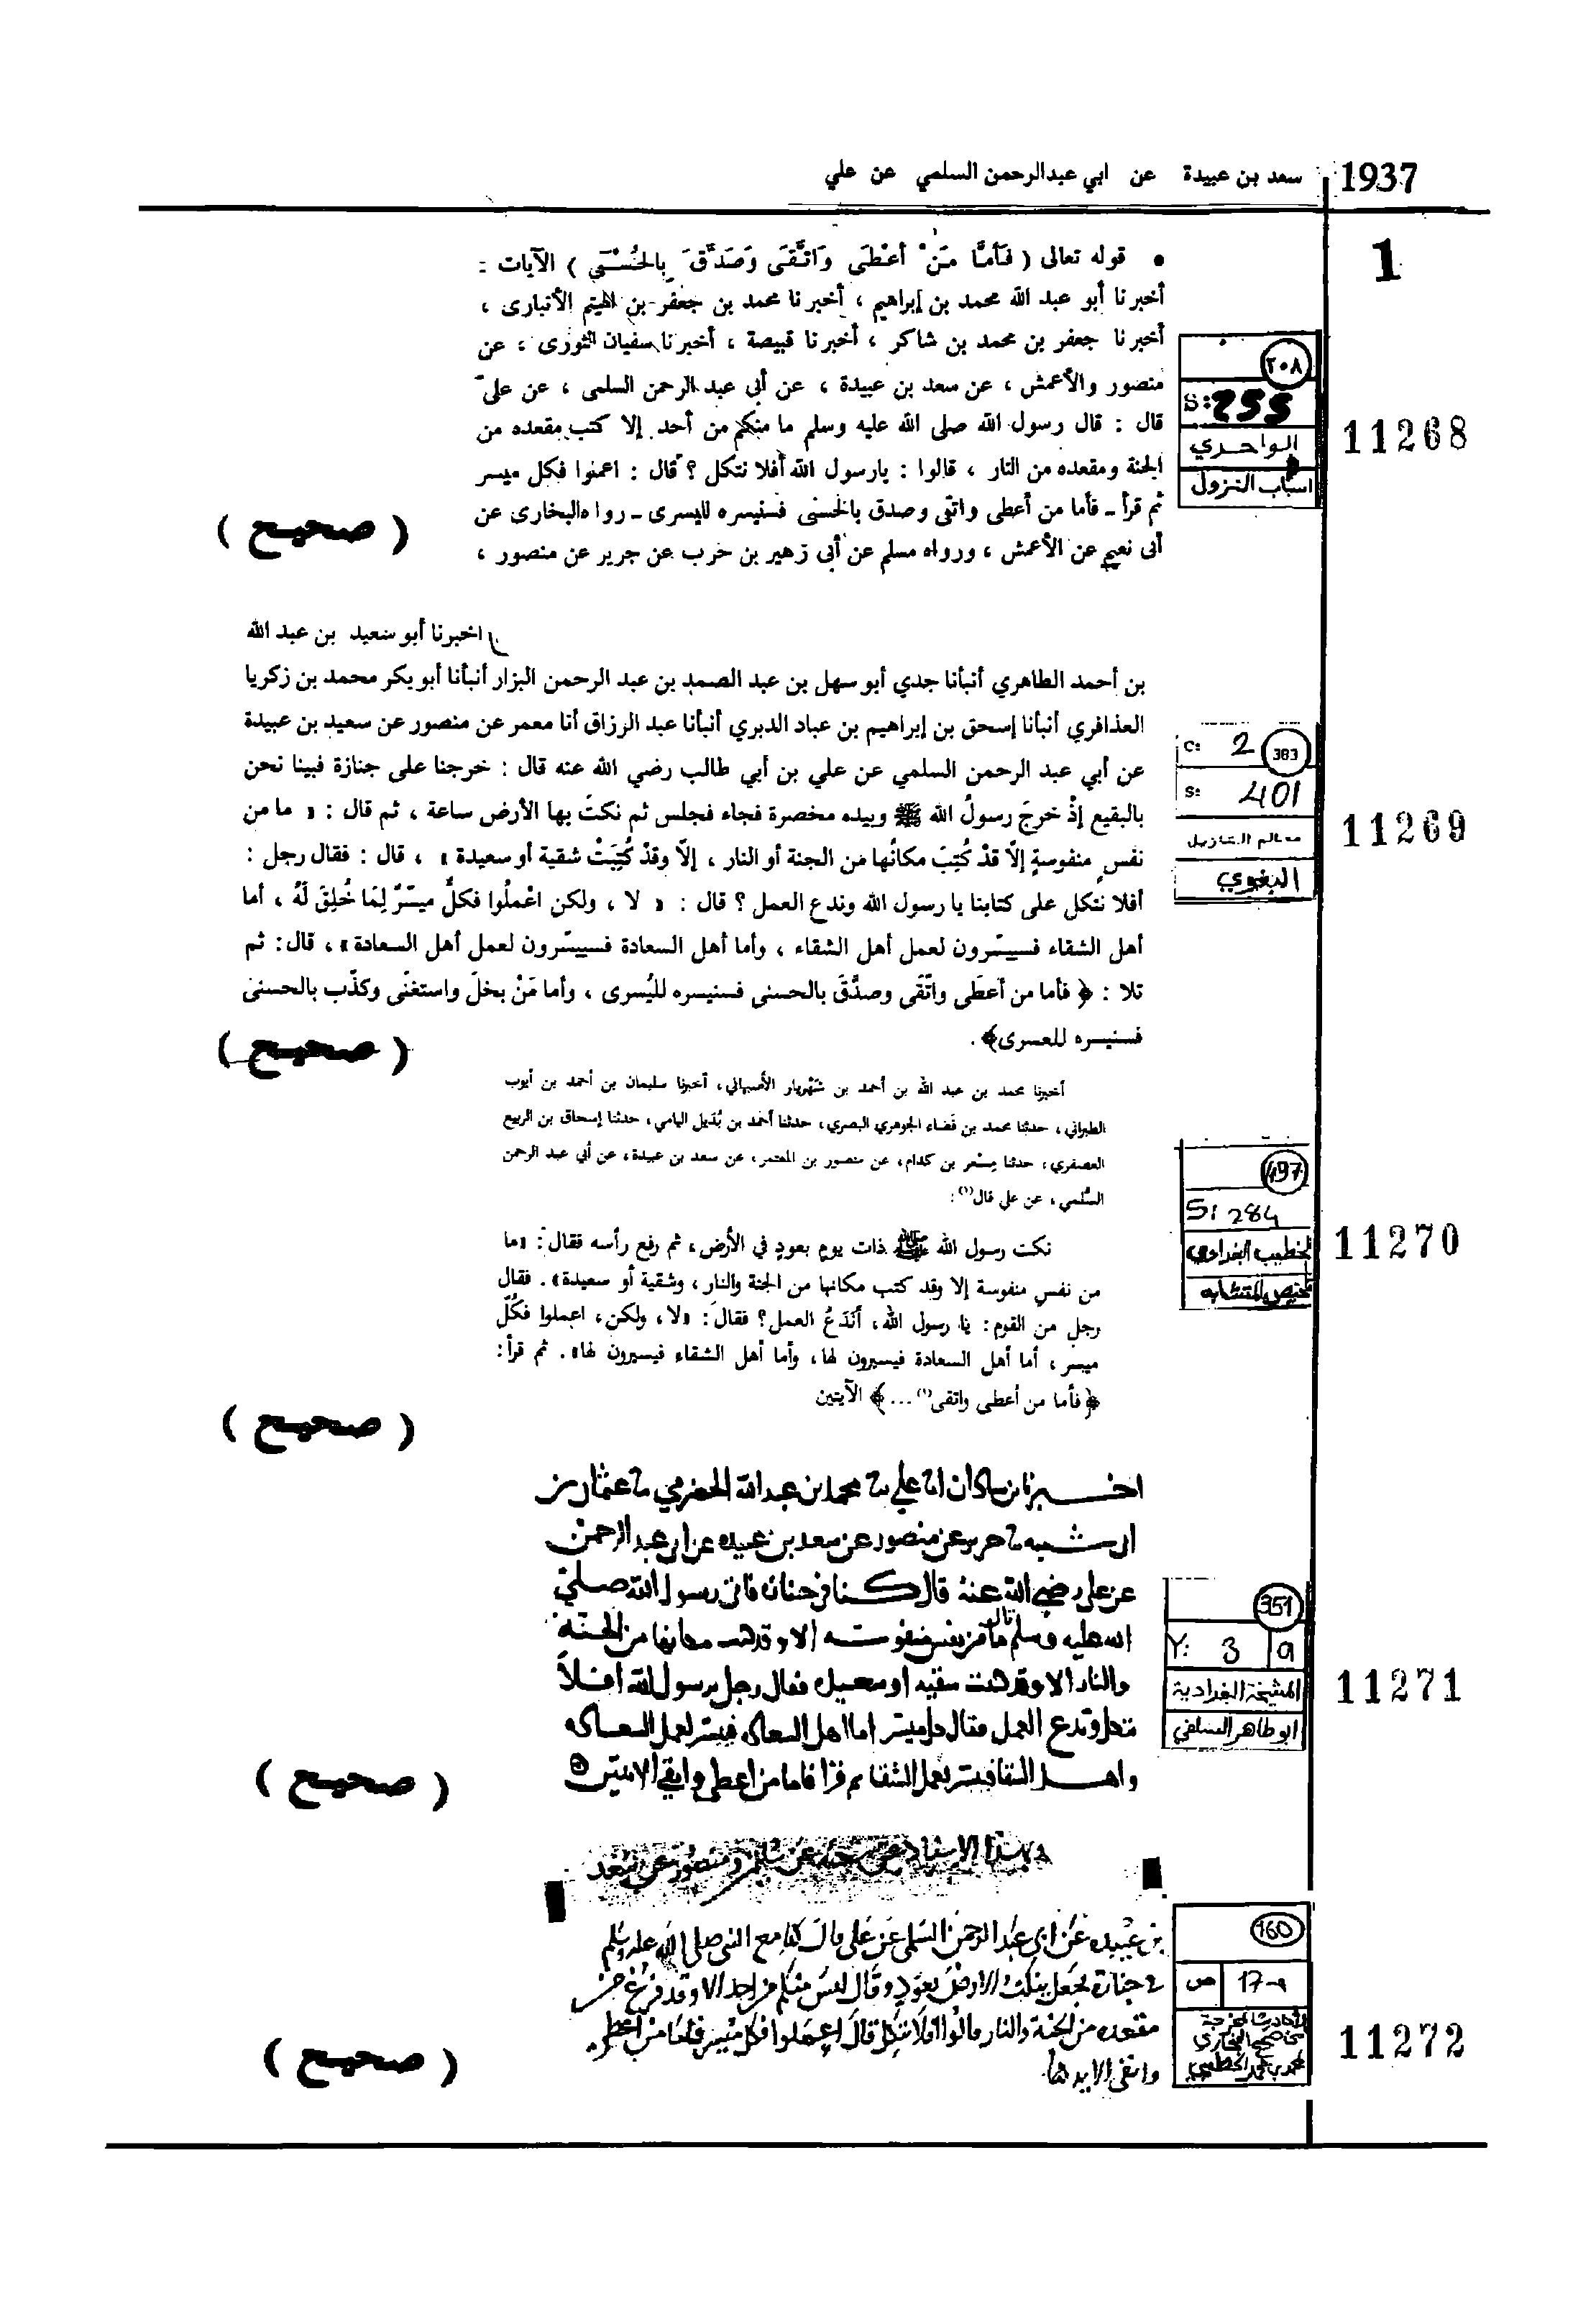 1937 سعد بن عبيدة عن ابي عبدالرحمن السلمي عن علي
1
• قوله تعالى ( فَأَمَّا مَنْ أَعْطَى وَاتَّقَى وَصَدَّقَ بِالحُسْنَى ) الآيات :
أخبرنا أبو عبد الله محمد بن إبراهيم ، أخبرنا محمد بن جعفر بن الهيثم الأنبارى ،
أخبرنا جعفر بن محمد بن شاكر ، أخبرنا قبيصة ، أخبرنا سفيان الثورى ، عن
منصور والأعمش ، عن سعد بن عبيدة ، عن أبى عبد الرحمن السلمى ، عن علىّ
قال : قال رسول الله صلى الله عليه وسلم ما منكم من أحد إلا كتب مقعده من
الجنة ومقعده من النار ، قالوا : يارسول الله أفلا نتكل ؟ قال : اعملوا فكل ميسر
ثم قرأ ـ فأما من أعطى واتقى وصدق بالحسنى فسنيسره لليسرى ـ رواه البخارى عن
أبى نعيم عن الأعمش ، ورواه مسلم عن أبى زهير بن حرب عن جرير عن منصور ،
( صحيح )
٢٠٨
S: 255
الواحدي
اسباب النزول
11268
اخبرنا أبو سعيد بن عبد الله
بن أحمد الطاهري أنبأنا جدي أبو سهل بن عبد الصمد بن عبد الرحمن البزار أنبأنا أبو بكر محمد بن زكريا
العذافري أنبأنا إسحق بن إبراهيم بن عباد الدبري أنبأنا عبد الرزاق أنا معمر عن منصور عن سعيد بن عبيدة
عن أبي عبد الرحمن السلمي عن علي بن أبي طالب رضي الله عنه قال : خرجنا على جنازة فبينا نحن
بالبقيع إذْ خرجَ رسولُ الله ﷺ وبيده مخصرة فجاء فجلس ثم نكتَ بها الأرض ساعة ، ثم قال : « ما من
نفسٍ منفوسةٍ إلّا قدْ كُتِبَ مكانُها من الجنة أو النار ، إلّا وقدْ كُتِبَتْ شقية أو سعيدة » ، قال : فقال رجل :
أفلا نتكل على كتابنا يا رسول الله وندع العمل ؟ قال : « لا ، ولكن اعْملُوا فكلٌّ ميسّرٌ لِمَا خُلِقَ لَهُ ، أما
أهل الشقاء فسييسّرون لعمل أهل الشقاء ، وأما أهل السعادة فسييسّرون لعمل أهل السعادة» ، قال: ثم
تلا : ﴿ فأما من أعطَى واتّقَى وصدَّقَ بالحسنى فسنيسره لليُسرى ، وأما مَنْ بخلَ واستغنَى وكذّب بالحسنى
فسنيسره للعسرى﴾ .
( صحيح )
383
C: 2
S: 401
معالم التنزيل
البغوي
11269
أخبرنا محمد بن عبد الله بن أحمد بن شَهْريار الأصبهاني، أخبرنا سليمان بن أحمد بن أيوب
الطبراني، حدثنا محمد بن قضاء الجوهري البصري، حدثنا أحمد بن بُدَيل اليامي، حدثنا إسحاق بن الربيع
العصفري، حدثنا مِسْعر بن كدام، عن منصور بن المعتمر، عن سعد بن عبيدة، عن أبي عبد الرحمن
السُّلمي، عن علي قال(١):
نكت رسول الله ﷺ ذات يومٍ بعودٍ في الأرض، ثم رفع رأسه فقال: «ما
من نفسٍ منفوسة إلا وقد كتب مكانها من الجنة والنار، وشقية أو سعيدة». فقال
رجل من القوم: يا رسول الله، أَنَدَعُ العمل؟ فقال: «لا، ولكن، اعملوا فكُلّ
ميسر، أما أهل السعادة فييسرون لها، وأما أهل الشقاء فييسرون لها». ثم قرأ:
﴿فأما من أعطى واتقى(١)...﴾ الآيتين
( صحيح )
497
S: 284
الخطيب البغدادي
تلخيص المتشابه
11270
اخبرنا بن شاذان انا علي نا محمد بن عبد الله الحضرمي نا عثمان بن
ابي شيبه نا جرير عن منصور عن سعد بن عبيده عن ابي عبد الرحمن
عن علي رضي الله عنه قال كنا في جنازه فاتى رسول الله صلى
الله عليه وسلم فقال ما من نفس منفوسه الا وقد كتب مكانها من الجنة
والنار الا وقد كتبت شقيه او سعيده فقال رجل يرسول الله افلا
نتكل وندع العمل فقال كل ميسر اما اهل السعاده فييسر لعمل السعاده
واهل الشقا فييسر لعمل الشقا ثم قرا فاما من اعطى واتقى الايتين
( صحيح )
351
Y: 3 a
المشيخة البغدادية
ابو طاهر السلفي
11271
وبهذا الاسناد عن شعبه عن سليمن ومنصور عن سعد
بن عبيده عن ابي عبد الرحمن السلمي عن علي قال كنا مع النبي صلى الله عليه وسلم
في جنازة فجعل ينكت الارض بعود وقال ليس منكم من احد الا وقد فرغ من
مقعده من الجنة والنار قالوا افلا نتكل قال اعملوا فكل ميسر فاما من اعطى
واتقى الايه
( صحيح )
160
ص 17-a
11272